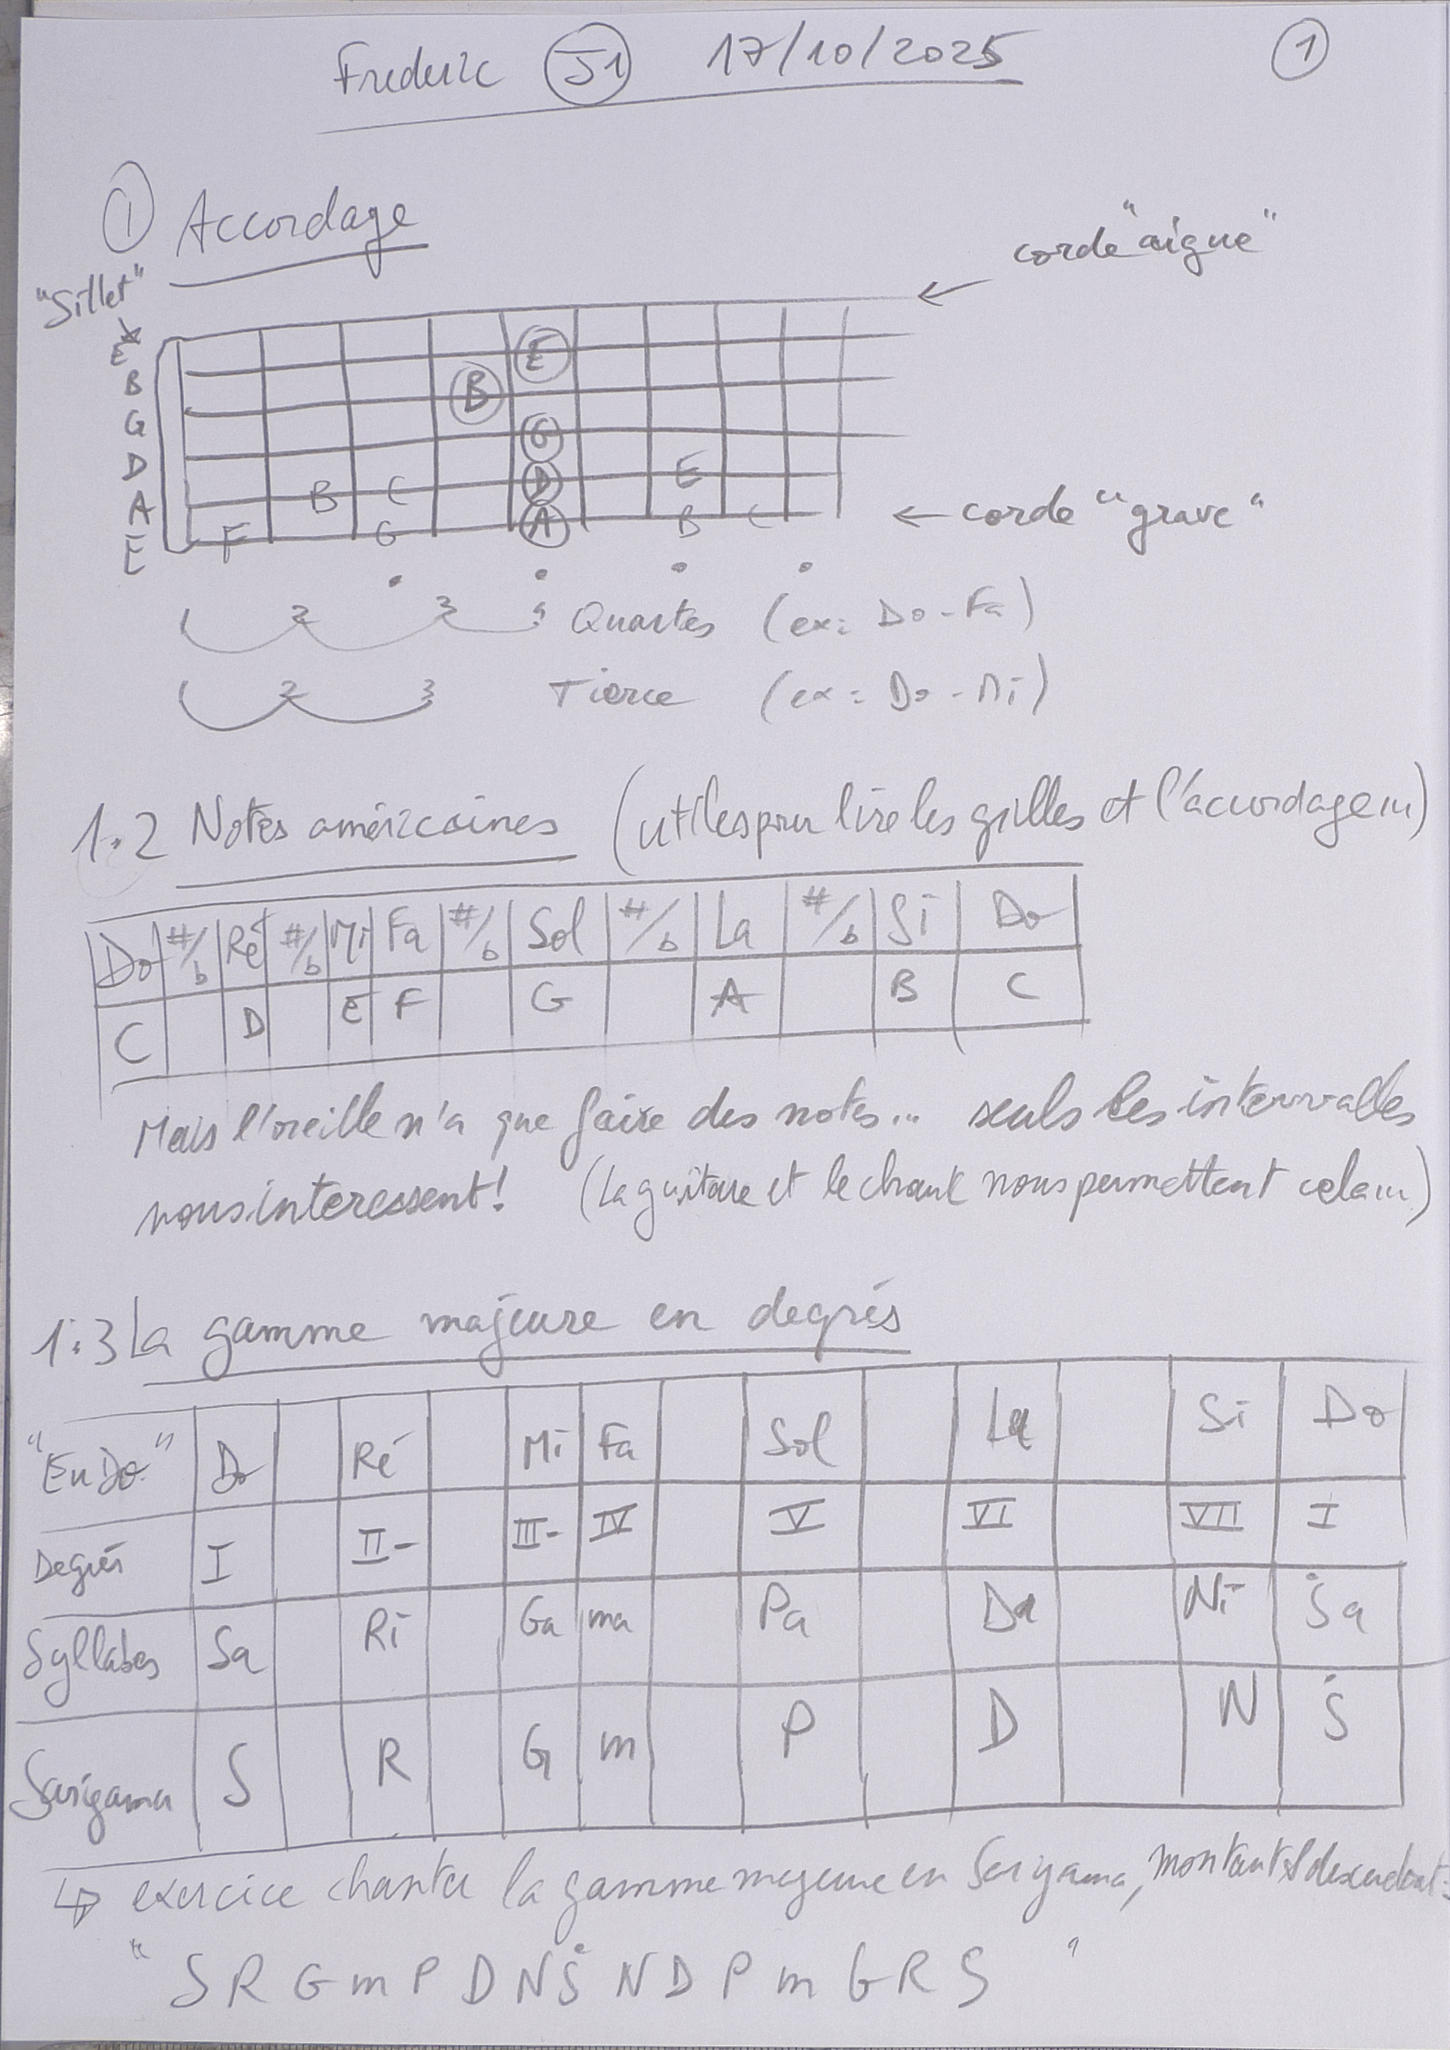 Frederic J1 17/10/2025 1
1 Accordage
corde "aigue"
"Sillet"
E
B
G
D
A
E
E
B
G
B C D E
F G A B C
corde "grave"
2 3 4 Quartes (ex: Do-Fa)
2 3 Tierce (ex: Do-Mi)
1.2 Notes américaines (utiles pour lire les grilles et l'accordage...)
Do #/b Ré #/b Mi Fa #/b Sol #/b La #/b Si Do
C D E F G A B C
Mais l'oreille n'a que faire des notes... seuls les intervalles
nous interessent! (La guitare et le chant nous permettent cela...)
1.3 La gamme majeure en degrés
"En Do" Do Ré Mi Fa Sol La Si Do
Degrés I II- III- IV V VI VII I
Syllabes Sa Ri Ga ma Pa Da Ni Ṡa
Sarigama S R G m P D N Ṡ
↳ exercice chanter la gamme majeure en Sarigama, montant & descendant:
" S R G m P D N Ṡ N D P m G R S "